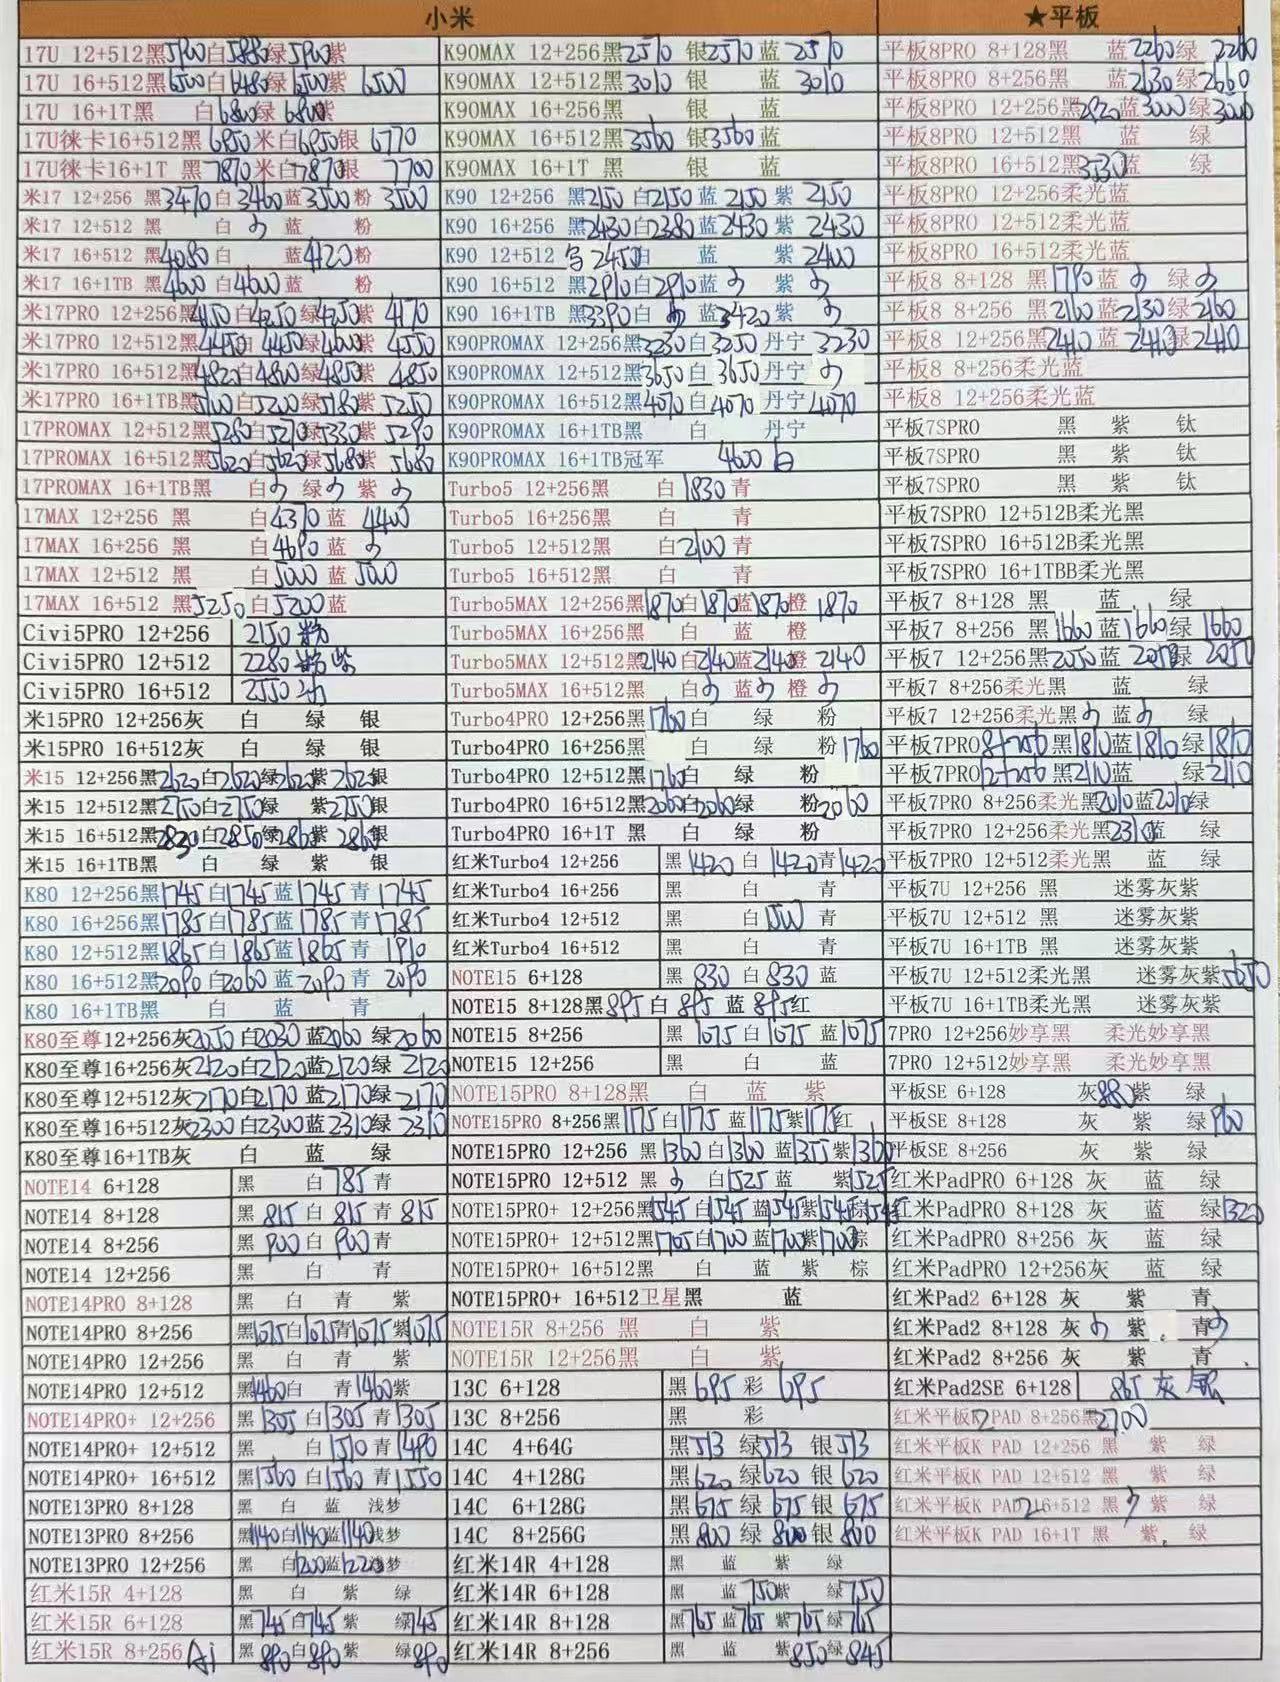 小米
17U 12+512黑5900白5880绿5900紫
17U 16+512黑6500白6480绿6500紫 6500
17U 16+1T黑 白6800绿 6800紫
17U徕卡16+512黑6950米白6950银 6770
17U徕卡16+1T 黑7870米白7870银 7700
米17 12+256 黑3470白3460蓝3500粉 3500
米17 12+512 黑 白 蓝 粉
米17 16+512 黑4080白 蓝4120粉
米17 16+1TB 黑4600白4600蓝 粉
米17PRO 12+256黑4150白4250绿4250紫 4170
米17PRO 12+512黑4450白4450绿4600紫 4550
米17PRO 16+512黑4820白4800绿4850紫 4850
米17PRO 16+1TB黑5100白5200绿5180紫 5250
17PROMAX 12+512黑5280白5270绿5330紫 5290
17PROMAX 16+512黑5620白5620绿5680紫 5680
17PROMAX 16+1TB黑 白 绿 紫
17MAX 12+256 黑 白4370蓝 4400
17MAX 16+256 黑 白4690蓝
17MAX 12+512 黑 白5000蓝 5000
17MAX 16+512 黑5250白5200蓝
Civi5PRO 12+256 2150 粉
Civi5PRO 12+512 2280 粉紫
Civi5PRO 16+512 2550
米15PRO 12+256灰 白 绿 银
米15PRO 16+512灰 白 绿 银
米15 12+256黑2620白2620绿2620紫2620银
米15 12+512黑2750白2750绿 紫2750银
米15 16+512黑2830白2850绿2860紫 2860银
米15 16+1TB黑 白 绿 紫 银
K80 12+256黑1745白1745蓝1745青1745
K80 16+256黑1785白1785蓝1785青1785
K80 12+512黑1865白1865蓝1865青 1910
K80 16+512黑2090白2060蓝2090青 2090
K80 16+1TB黑 白 蓝 青
K80至尊12+256灰2050白2030蓝2060绿2060
K80至尊16+256灰2120白2120蓝2120绿2120
K80至尊12+512灰2170白2170蓝2170绿2170
K80至尊16+512灰2300白2300蓝2310绿2310
K80至尊16+1TB灰 白 蓝 绿
NOTE14 6+128 黑 白785青
NOTE14 8+128 黑 815白815青815
NOTE14 8+256 黑 900白900青
NOTE14 12+256 黑 白 青
NOTE14PRO 8+128 黑 白 青 紫
NOTE14PRO 8+256 黑1075白1075青1075紫1075
NOTE14PRO 12+256 黑 白 青 紫
NOTE14PRO 12+512 黑1460白 青1460紫
NOTE14PRO+ 12+256 黑1305白1305青1305
NOTE14PRO+ 12+512 黑 白1510青1490
NOTE14PRO+ 16+512 黑1560白1560青1550
NOTE13PRO 8+128 黑 白 蓝 浅梦
NOTE13PRO 8+256 黑1140白1140蓝1140浅梦
NOTE13PRO 12+256 黑 白1200蓝1220浅梦
红米15R 4+128 黑 白 紫 绿
红米15R 6+128 黑745白745紫 绿745
红米15R 8+256 Ai 黑890白890紫 绿890
K90MAX 12+256黑2570 银2570蓝 2570
K90MAX 12+512黑3010 银 蓝 3010
K90MAX 16+256黑 银 蓝
K90MAX 16+512黑3560银3560蓝
K90MAX 16+1T黑 银 蓝
K90 12+256 黑2150白2150蓝2150紫2150
K90 16+256 黑2430白2380蓝2430紫2430
K90 12+512 2450白 蓝 紫2400
K90 16+512 黑2910白2910蓝 紫
K90 16+1TB 黑3390白 蓝3420紫
K90PROMAX 12+256黑3230白3250丹宁3230
K90PROMAX 12+512黑3650白 3650丹宁
K90PROMAX 16+512黑4070白4070丹宁4070
K90PROMAX 16+1TB黑 白 丹宁
K90PROMAX 16+1TB冠军 4600 白
Turbo5 12+256黑 白1830青
Turbo5 16+256黑 白 青
Turbo5 12+512黑 白2100青
Turbo5 16+512黑 白 青
Turbo5MAX 12+256黑1870白1870蓝1870橙 1870
Turbo5MAX 16+256黑 白 蓝 橙
Turbo5MAX 12+512黑2140白2140蓝2140橙 2140
Turbo5MAX 16+512黑 白 蓝 橙
Turbo4PRO 12+256黑1760白 绿 粉
Turbo4PRO 16+256黑 白 绿 粉1760
Turbo4PRO 12+512黑1760白 绿 粉
Turbo4PRO 16+512黑2060白2060绿 粉2060
Turbo4PRO 16+1T 黑 白 绿 粉
红米Turbo4 12+256 黑1420白1420青1420
红米Turbo4 16+256 黑 白 青
红米Turbo4 12+512 黑 白1500青
红米Turbo4 16+512 黑 白 青
NOTE15 6+128 黑 830白830蓝
NOTE15 8+128黑895白 895蓝 895红
NOTE15 8+256 黑1075白1075蓝1075
NOTE15 12+256 黑 白 蓝
NOTE15PRO 8+128黑 白 蓝 紫
NOTE15PRO 8+256黑1175白1175蓝1175紫1175红
NOTE15PRO 12+256 黑1360白1360蓝1355紫1360
NOTE15PRO 12+512 黑 白1525蓝 紫1525
NOTE15PRO+ 12+256黑1545白1545蓝1545紫1545棕1545
NOTE15PRO+ 12+512黑1705白1700蓝1700紫1700棕
NOTE15PRO+ 16+512黑 白 蓝 紫 棕
NOTE15PRO+ 16+512卫星黑 蓝
NOTE15R 8+256 黑 白 紫
NOTE15R 12+256黑 白 紫
13C 6+128 黑695彩 695
13C 8+256 黑 彩
14C 4+64G 黑513绿513银513
14C 4+128G 黑620绿620银620
14C 6+128G 黑675绿675银675
14C 8+256G 黑800绿800银800
红米14R 4+128 黑 蓝 紫 绿
红米14R 6+128 黑 蓝750紫 绿750
红米14R 8+128 黑765蓝765紫765绿765
红米14R 8+256 黑 蓝 紫850绿845
★平板
平板8PRO 8+128黑 蓝2260绿 2260
平板8PRO 8+256黑 蓝2630绿2660
平板8PRO 12+256黑2920蓝3000绿3000
平板8PRO 12+512黑 蓝 绿
平板8PRO 16+512黑3530蓝 绿
平板8PRO 12+256柔光蓝
平板8PRO 12+512柔光蓝
平板8PRO 16+512柔光蓝
平板8 8+128 黑1790蓝 绿
平板8 8+256 黑2160蓝2130绿2160
平板8 12+256黑2410蓝 2410绿2410
平板8 8+256柔光蓝
平板8 12+256柔光蓝
平板7SPRO 黑 紫 钛
平板7SPRO 黑 紫 钛
平板7SPRO 黑 紫 钛
平板7SPRO 12+512B柔光黑
平板7SPRO 16+512B柔光黑
平板7SPRO 16+1TBB柔光黑
平板7 8+128 黑 蓝 绿
平板7 8+256 黑1660蓝1660绿 1660
平板7 12+256黑2050蓝 2050绿 2050
平板7 8+256柔光黑 蓝 绿
平板7 12+256柔光黑 蓝 绿
平板7PRO 8+256黑1810蓝1810绿1810
平板7PRO 12+256黑2110蓝 绿2110
平板7PRO 8+256柔光黑2010蓝2010绿
平板7PRO 12+256柔光黑2310蓝 绿
平板7PRO 12+512柔光黑 蓝 绿
平板7U 12+256 黑 迷雾灰紫
平板7U 12+512 黑 迷雾灰紫
平板7U 16+1TB 黑 迷雾灰紫
平板7U 12+512柔光黑 迷雾灰紫5650
平板7U 16+1TB柔光黑 迷雾灰紫
7PRO 12+256妙享黑 柔光妙享黑
7PRO 12+512妙享黑 柔光妙享黑
平板SE 6+128 灰880紫 绿
平板SE 8+128 灰 紫 绿960
平板SE 8+256 灰 紫 绿
红米PadPRO 6+128 灰 蓝 绿
红米PadPRO 8+128 灰 蓝 绿1320
红米PadPRO 8+256 灰 蓝 绿
红米PadPRO 12+256灰 蓝 绿
红米Pad2 6+128 灰 紫 青
红米Pad2 8+128 灰 紫 青
红米Pad2 8+256 灰 紫 青
红米Pad2SE 6+128 865 灰 银
红米平板K2 PAD 8+256黑2700
红米平板K PAD 12+256 黑 紫 绿
红米平板K PAD 12+512 黑 紫 绿
红米平板K PAD 2 16+512 黑 紫 绿
红米平板K PAD 16+1T 黑 紫 绿